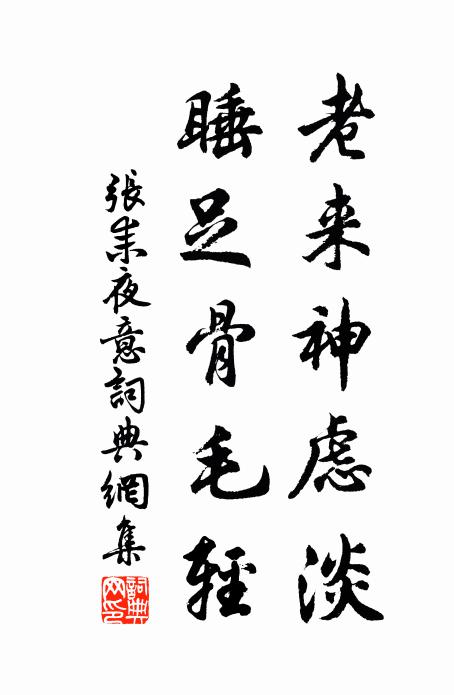 老来神虑淡
睡足骨毛輕
張耒夜意詞典網集
詞典網印